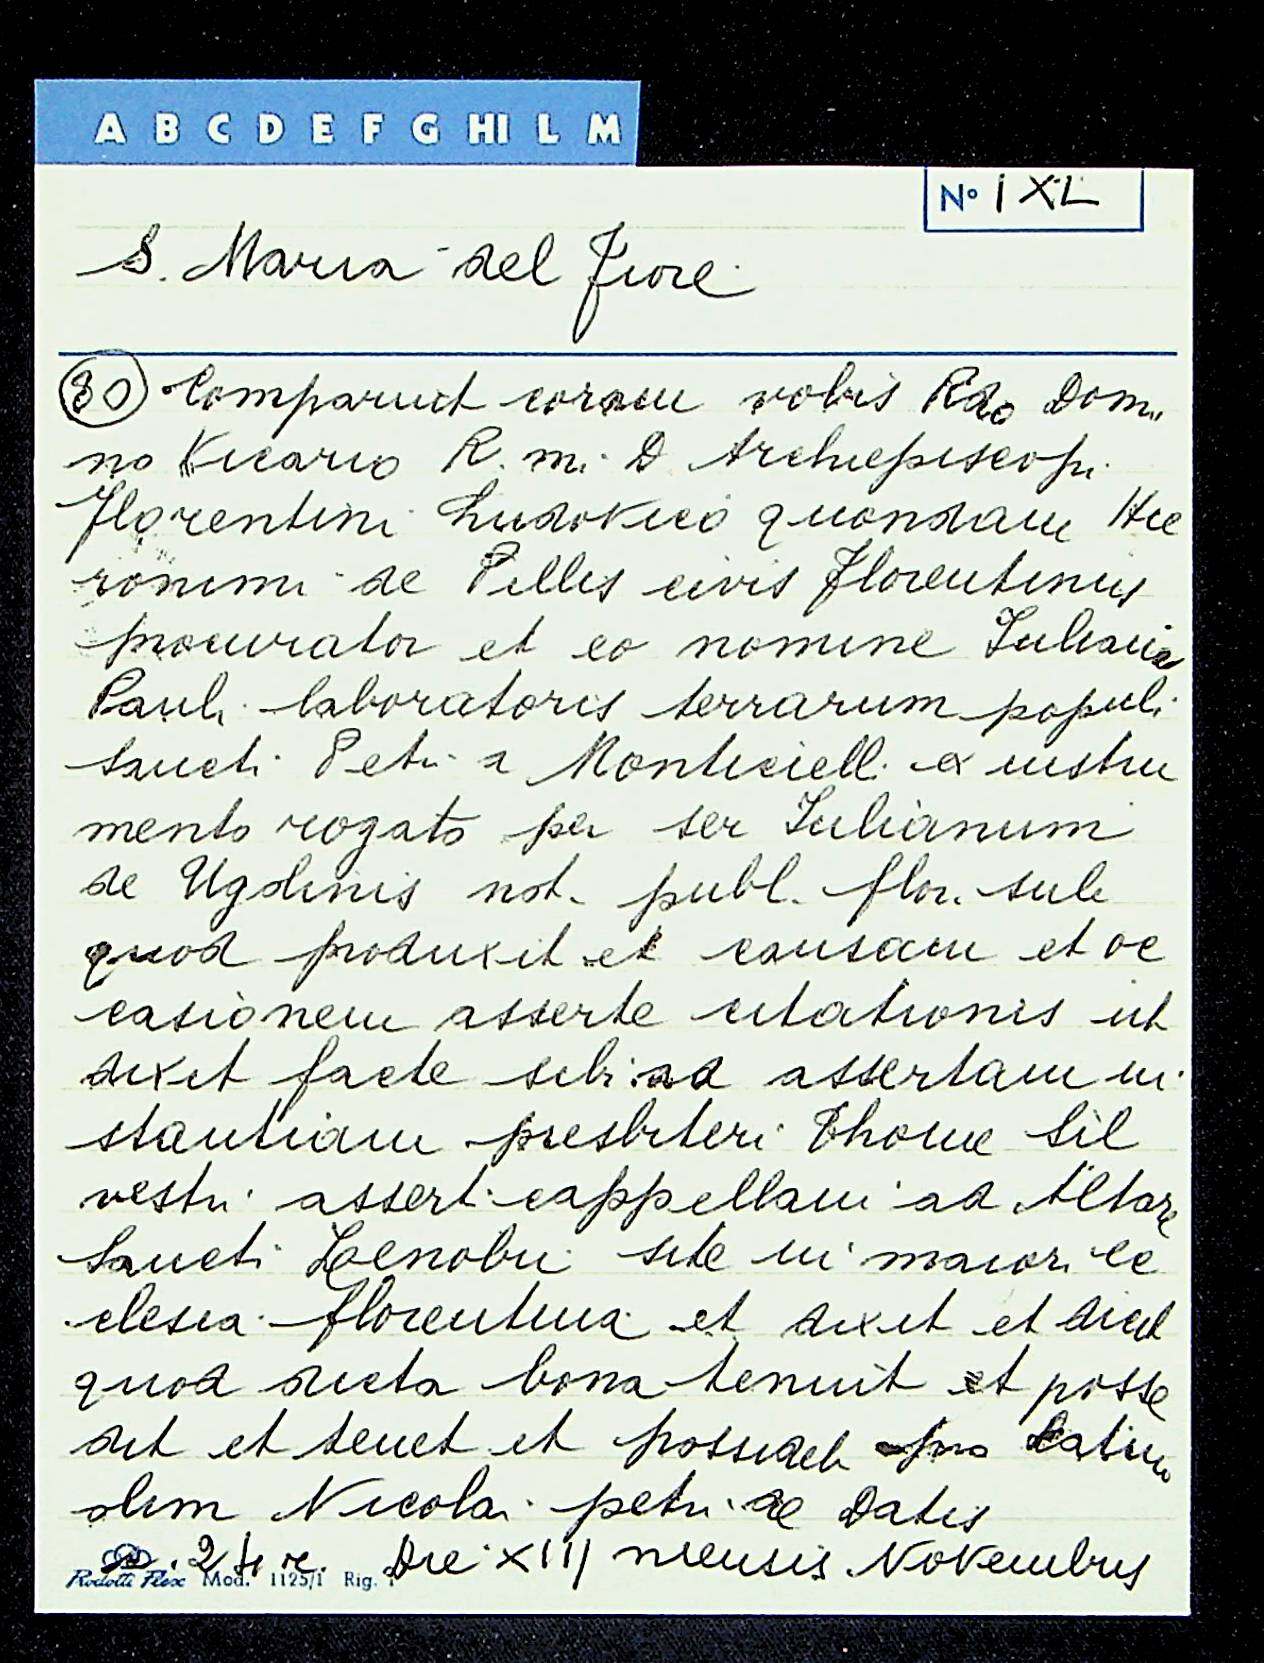 A B C D E F G HI L M
N° IXL
S. Maria del Fiore
30 Comparuit coram vobis Rdo Domi
no Vicario R. mi. D Archiepiscopi
Florentini Ludovico quondam Hie
ronimi de Pillis civis Florentinus
procurator et eo nomine Iuliani
Pauli laboratoris terrarum populi
Sancti Petri a Monticielli ex instru
mento rogato per ser Iulianum
de Ugolinis not. publ. flor. sub
quod produxit et causam et oc
casionem asserte citationis ut
dixit facte sibi ad assertam in
stantiam presbiteri Thome Sil
vestri asserti cappellani ad Altare
Sancti Zenobii site in maiori ec
clesia florentina et dixit et dicit
quod dicta bona tenuit et posse
dit et tenet et possidet pro
olim Nicolai petri de Datis
Die XIII mensis Novembris
Rodotti Flex Mod. 1125/1 Rig. 1